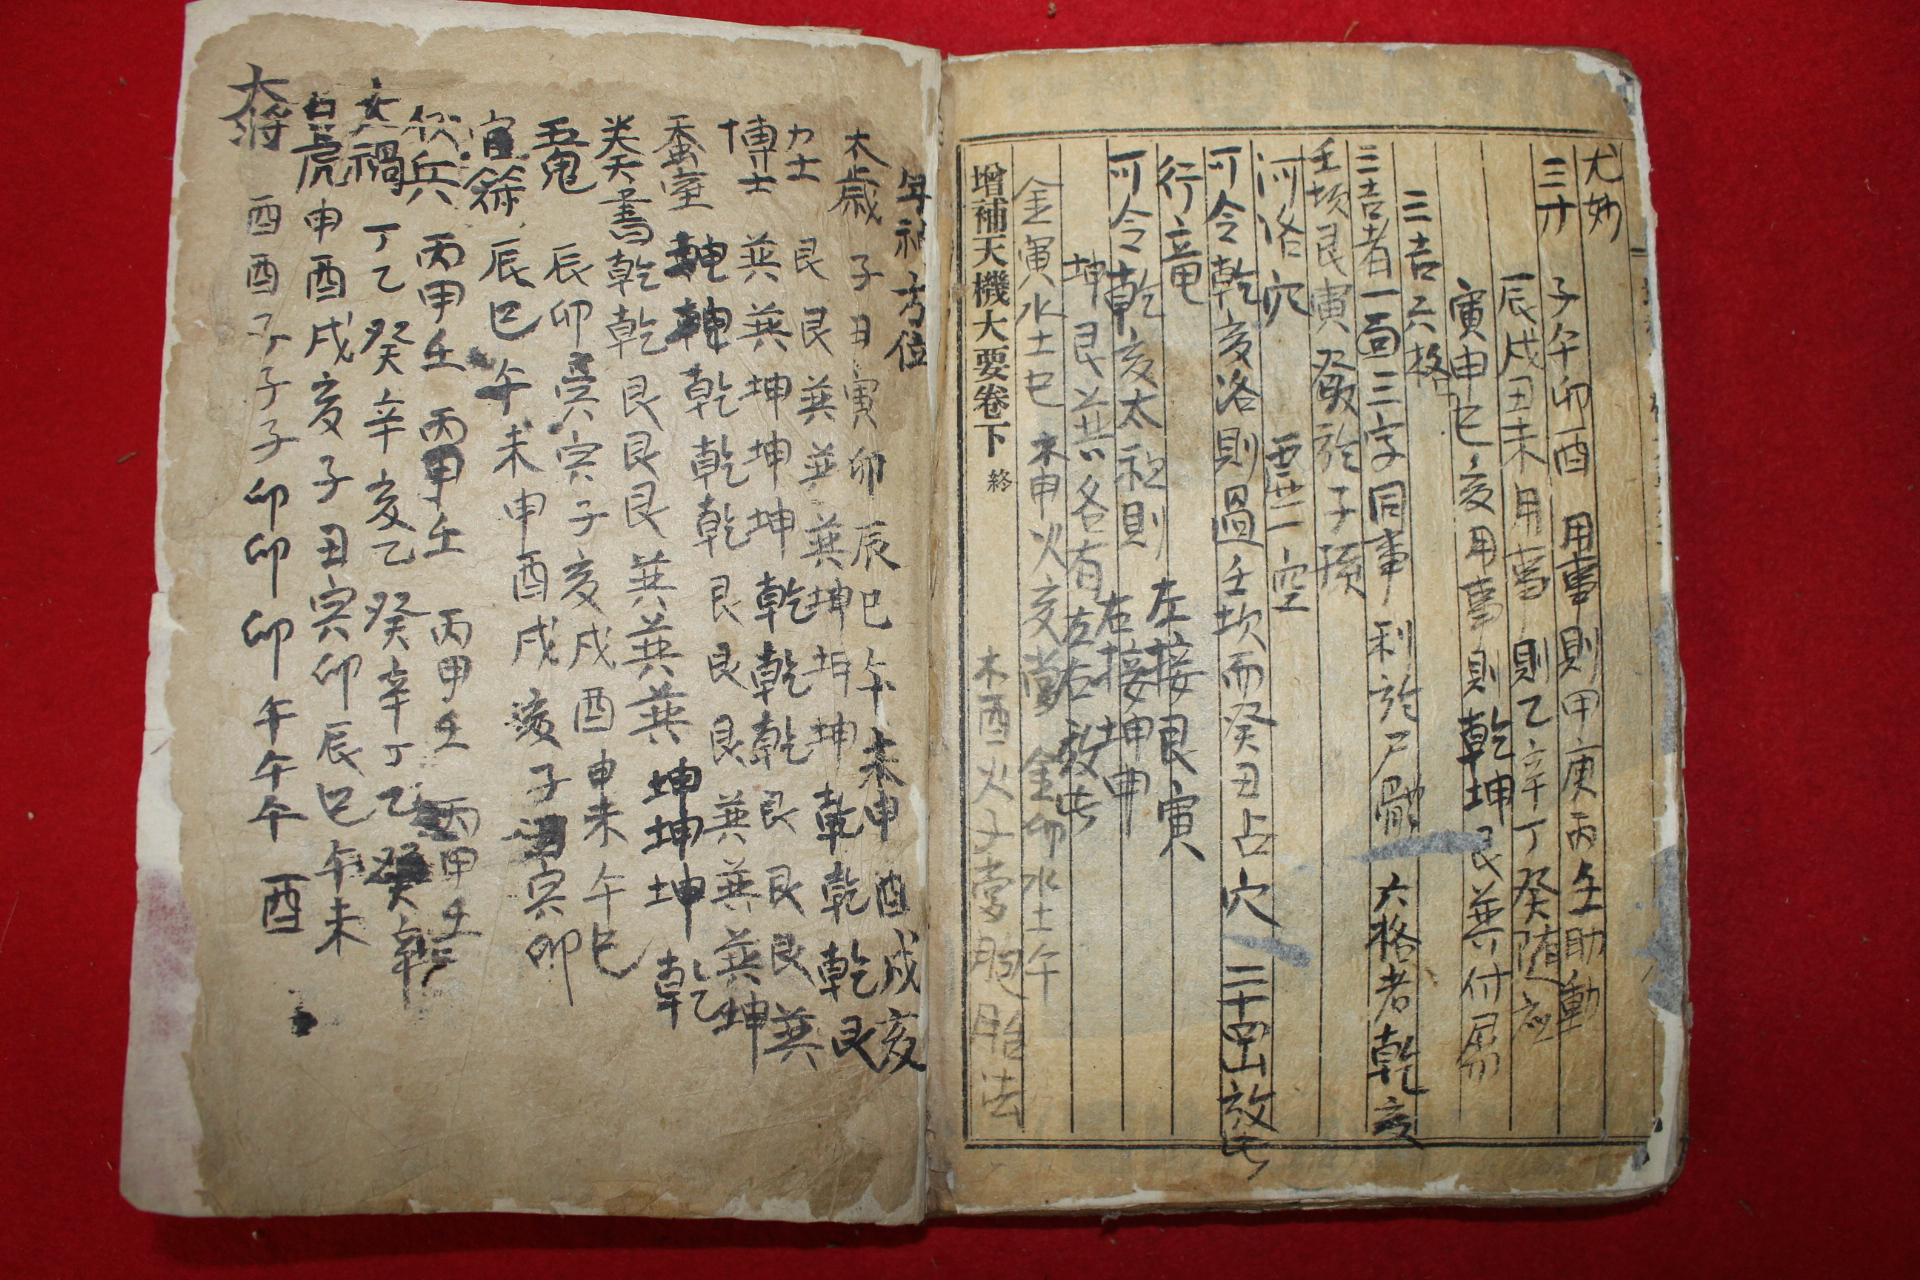 尤妙
三才 子午卯酉 用事則甲庚丙壬助動
辰戌丑未用事則乙辛丁癸随意
寅申巳亥用事則乾坤艮巽付局
三吉六格
三吉者一面三字同事利於尸骸 六格者乾亥
壬坎艮寅發於子孫
河洛穴 要一空
可令乾亥洛則過壬坎而癸丑占穴 二十四山放此
行竜 左接艮寅
可令乾亥太祖則 右接坤申
坤艮巽各有左右放此
金寅水土巳 木申火亥 金卯水土午
增補天機大要卷下 終 木酉火子 胞胎法
年神方位
太歲 子丑寅卯辰巳午未申酉戌亥
力士 艮艮巽巽巽坤坤坤乾乾乾艮
博士 巽巽坤坤坤乾乾乾艮艮艮巽
蚕室 坤坤乾乾乾艮艮艮巽巽巽坤
奏書 乾乾艮艮艮巽巽巽坤坤坤乾
五鬼 辰卯寅丑子亥戌酉申未午巳
官符 辰巳午未申酉戌亥子丑寅卯
伏兵 丙甲壬 丙甲壬 丙甲壬 丙甲壬
灾禍 丁乙癸辛 乙癸辛丁乙癸辛
白虎 申酉戌亥子丑寅卯辰巳午未
大將 酉酉子子子卯卯卯午午午酉